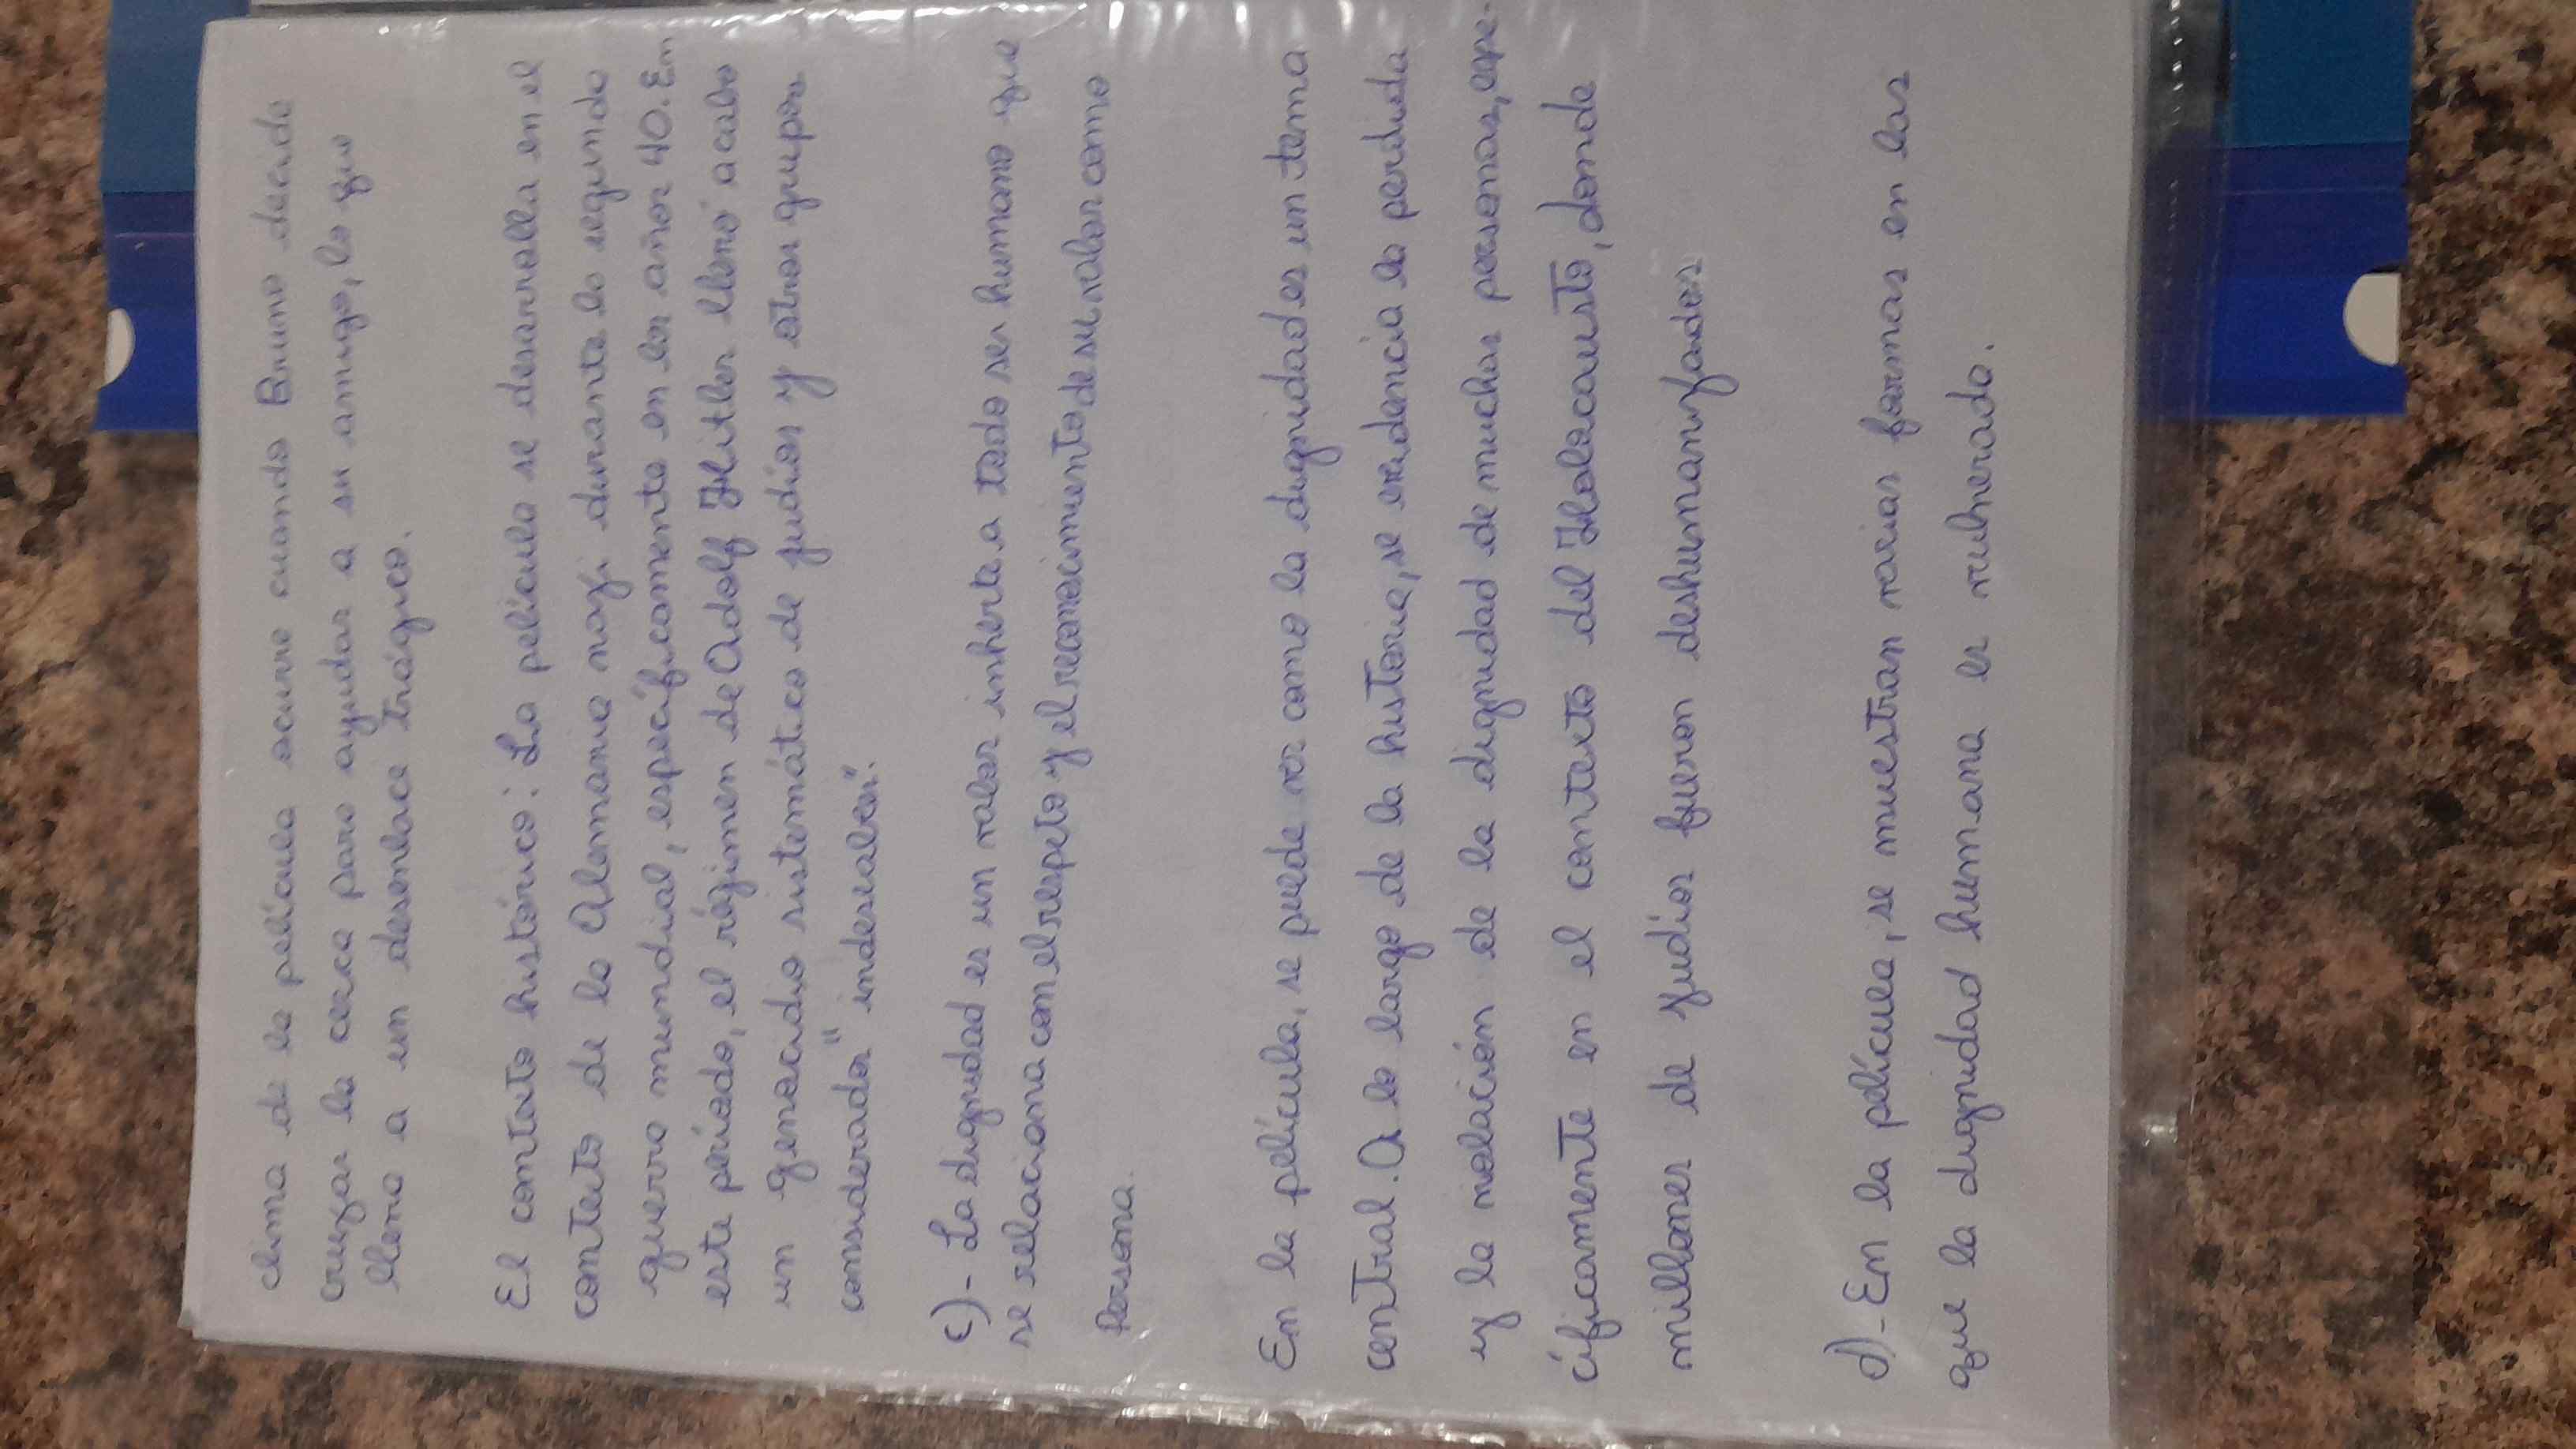 clima de la película ocurre cuando Bruno decide
cruzar la cerca para ayudar a su amigo, lo que
lleva a un desenlace trágico.
El contexto histórico: La película se desarrolla en el
contexto de la Alemania nazi durante la segunda
guerra mundial, específicamente en los años 40. En
este período, el régimen de Adolf Hitler llevó a cabo
un genocidio sistemático de judíos y otros grupos
considerados "indeseables".
c)- La dignidad es un valor inherte a todo ser humano que
se relaciona con el respeto y el reconocimiento de su valor como
Persona.
En la película, se puede ver como la dignidad es un tema
central. A lo largo de la historia, se evidencia la perdida
y la violación de la dignidad de muchas personas, espe-
cíficamente en el contexto del Holocausto, donde
millones de judíos fueron deshumanizados
d)- En la película, se muestran varias formas en las
que la dignidad humana es vulnerada.